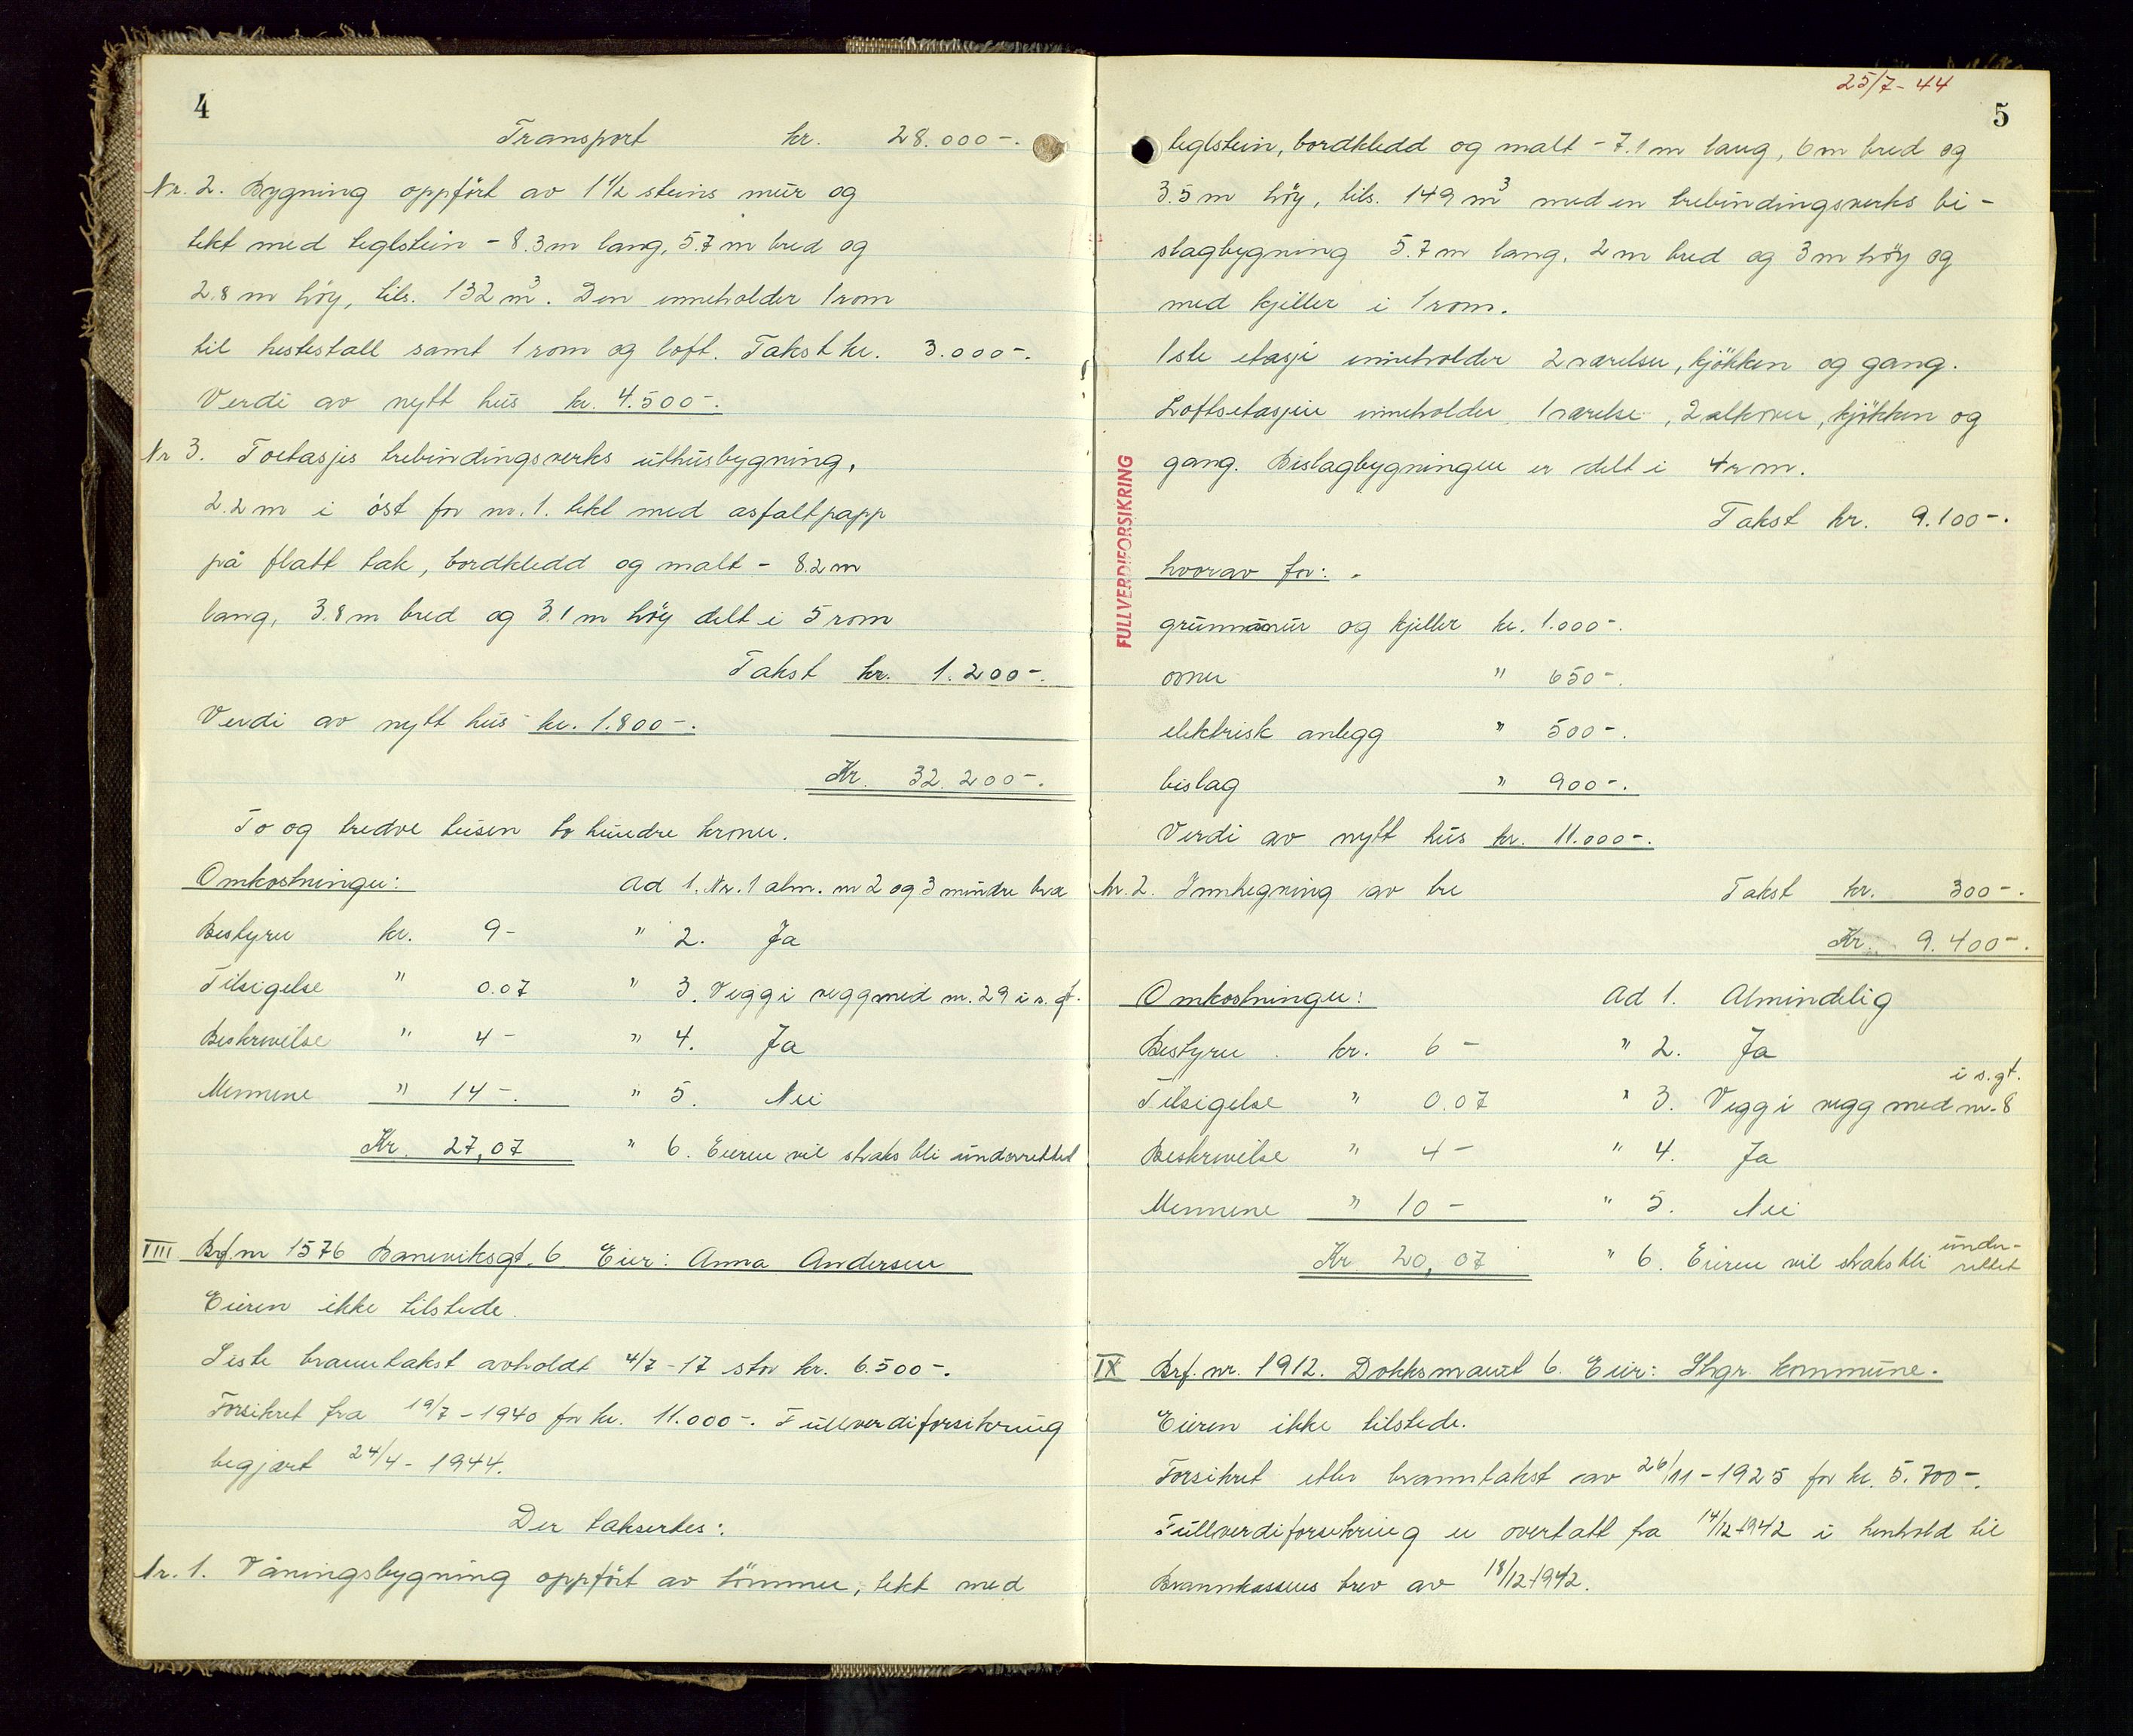 4
Transport kr. 28.000-.
Nr. 2. Bygning oppført av 1 1/2 steins mur og
tekt med teglstein - 8.3m lang, 5.7 m bred og
2.8 m høy, tils. 132 m³. Den inneholder 1 rom
til hestestall samt 1 rom og loft. Takst kr. 3.000-.
Verdi av nytt hus kr. 4.500-.
Nr 3. Toetasjes trebindingsverks uthusbygning,
2.2 m i öst for nr. 1. tekt med asfaltpapp
på flatt tak, bordkledd og malt - 8.2 m
lang, 3.8 m bred og 3.1 m høy delt i 5 rom
Takst kr. 1.200-.
Verdi av nytt hus kr. 1.800-.
Kr. 32.200-.
To og tredve tusen to hundre kroner.
Omkostninger: Ad 1. Nr. 1 alm. nr 2 og 3 mindre bra
Bestyrer kr. 9- " 2. Ja
Tilsigelse " 0.07 " 3. Vegg i vegg med nr. 29 i s. gt.
Beskrivelse " 4- " 4. Ja
Mennene " 14-. " 5. Nei
Kr. 27,07 " 6. Eieren vil straks bli underrettet
VIII Brf. nr 1576 Baneviksgt. 6. Eier: Anna Andersen
Eieren ikke tilstede.
Siste branntakst avholdt 4/7-17 stor kr. 6.500-.
Forsikret fra 19/7-1940 for kr. 11.000-. Fullverdiforsikring
begjært 24/4-1944.
Der takseres:
Nr. 1. Våningsbygning oppført av tömmer, tekt med
25/7-44
5
teglstein, bordkledd og malt - 7.1 m lang, 6 m bred og
3.5 m høy, tils. 149 m³ med en trebindingsverks bi-
slagbygning 5.7 m lang, 2 m bred og 3 m høy og
med kjeller i 1 rom.
1ste etasje inneholder 2 værelser, kjökken og gang.
Loftsetasjen inneholder 1 værelse, 2 alkover, kjökken og
gang. Bislagbygningen er delt i 4 rom.
Takst kr. 9.100-.
FULLVERDIFORSIKRING
hvorav for: -
grunnmur og kjeller kr. 1.000-.
ovner " 650-.
elektrisk anlegg " 500-.
bislag " 900-.
Verdi av nytt hus kr. 11.000-.
Nr. 2. Innhegning av tre Takst kr. 300-.
Kr. 9.400-.
Omkostninger: Ad 1. Almindelig
Bestyrer kr. 6- " 2. Ja
Tilsigelse " 0.07 " 3. Vegg i vegg med nr. 8 i s. gt.
Beskrivelse " 4- " 4. Ja
Mennene " 10- " 5. Nei
Kr 20,07 " 6. Eieren vil straks bli under-rettet
IX Brf. nr. 1912. Dokksmauet 6. Eier: Stvgr. kommune.
Eieren ikke tilstede.
Forsikret etter branntakst av 26/11-1925 for kr. 5.700-.
Fullverdiforsikring er overtatt fra 14/12-1942 i henhold til
Brannkassens brev av 18/12-1942.